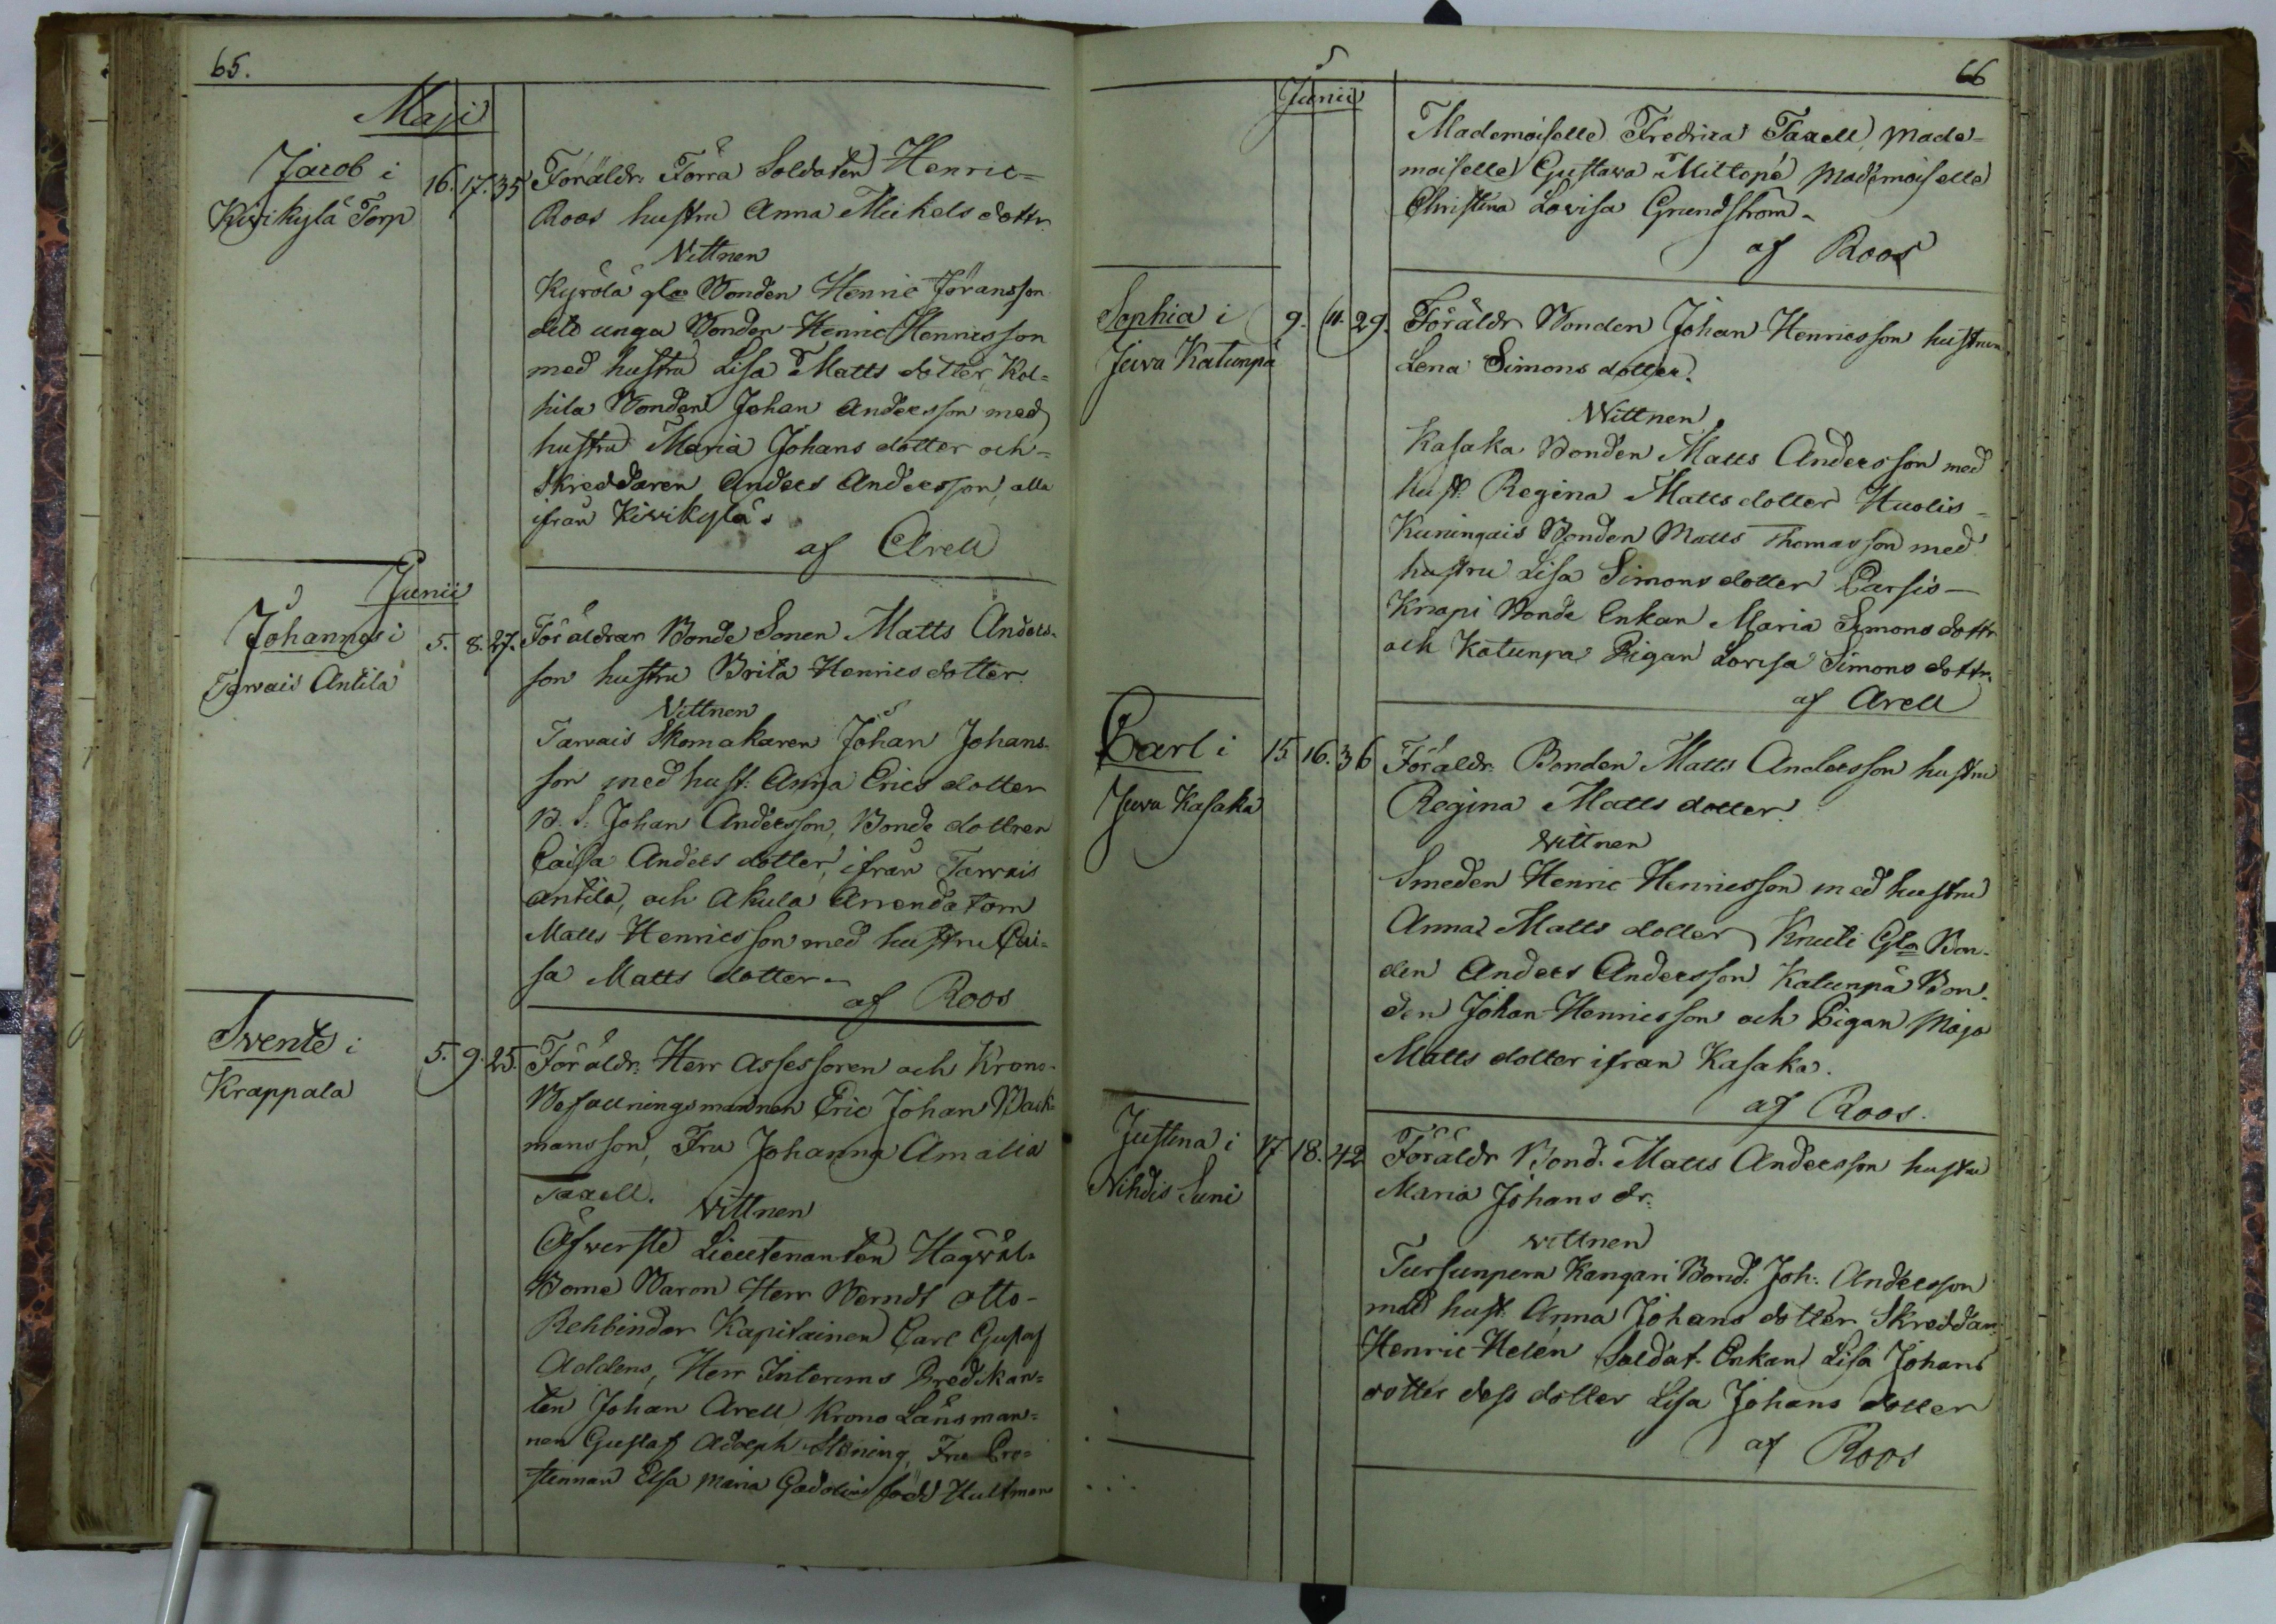 65.
Maji
Jacob i
Kivikylä Torp
16. 17. 35
Föräldr: Förra Soldaten Henric
Roos hustru Anna Mickels dottr.
Vittnen
Kyrölä gla Bonden Henric Jöransson
dito unga Bonden Henric Henricsson
med hustru Lisa Matts dotter, Kol=
hila Bonden Johan Andersson med
hustru Maria Johans dotter och=
Skreddaren Anders Andersson, alla
ifrån Kivikylä.
af Arell
Junii
Johannes i
Tarvais Antila
5. 8. 27.
Föräldrar Bonde Sonen Matts Anders-
son hustru Brita Henrics dotter.
Vittnen
Tarvais Skomakaren Johan Johans-
son med hust: Anna Erics dotter
B. S. Johan Andersson, Bonde dottren
Caisa Anders dotter, ifrån Tarvais
Antila, och Akula Arrendatorn
Matts Henricsson med hustru Cai=
sa Matts dotter.
af Roos
Svente i
Krappala
5. 9. 25.
Föräldr: Herr Assessoren och Krono-
Befallningsmannen Eric Johan Back-
mansson, Fru Johanna Amalia
Taxell.
Vittnen
Öfverste Lieutenanten Högväl=
Borne Baron Herr Berndt Otto-
Rehbinder Kapitainen Carl Gustaf
Aoldens, Herr Interims Predikan=
ten Johan Arell Krono Länsman=
nen Gustaf Adolph Löning, Fru Pro=
stinnan Elsa Maria Gadolin född Hultman
66
Junii
Mademoiselle Fredrica Taxell, Made=
moiselle Gustava Miltopé Mademoiselle
Christina Lovisa Grundström
af Roos
Sophia i
Juva Katunpä
9. 11. 29.
Föräldr Bonden Johan Henricsson hustrun
Lena Simons dotter.
Wittnen
Kasaka Bonden Matts Andersson med
hust. Regina Matts dotter Huolis-
Kuningais Bonden Matts Thomasson med
hustru Lisa Simons dotter Parsis-
Knapi Bonde Enkan Maria Simons dottr
och Katunpä Pigan Lovisa Simons dottr.
af Arell
Carl i
Juva Kasaka
15 16. 36
Föräldr: Bonden Matts Andersson hustru
Regina Matts dotter.
Vittnen
Smeden Henric Henricsson med hustru
Anna Matts dotter, Knuti Gla Bon-
den Anders Andersson Katunpä Bon-
den Johan Henricsson och Pigan Maja
Matts dotter ifrån Kasaka.
af Roos.
Justina i
Nihdis Suni
17 18. 42
Föräldr Bond. Matts Andersson hustru
Maria Johans dr.
vittnen
Tursunperä Kangari Bond: Joh: Andersson
med hust. Anna Johans dotter Skreddarn:
Henric Helén Soldat Enkan Lisa Johans
dotter dess dotter Lisa Johans dotter
af Roos